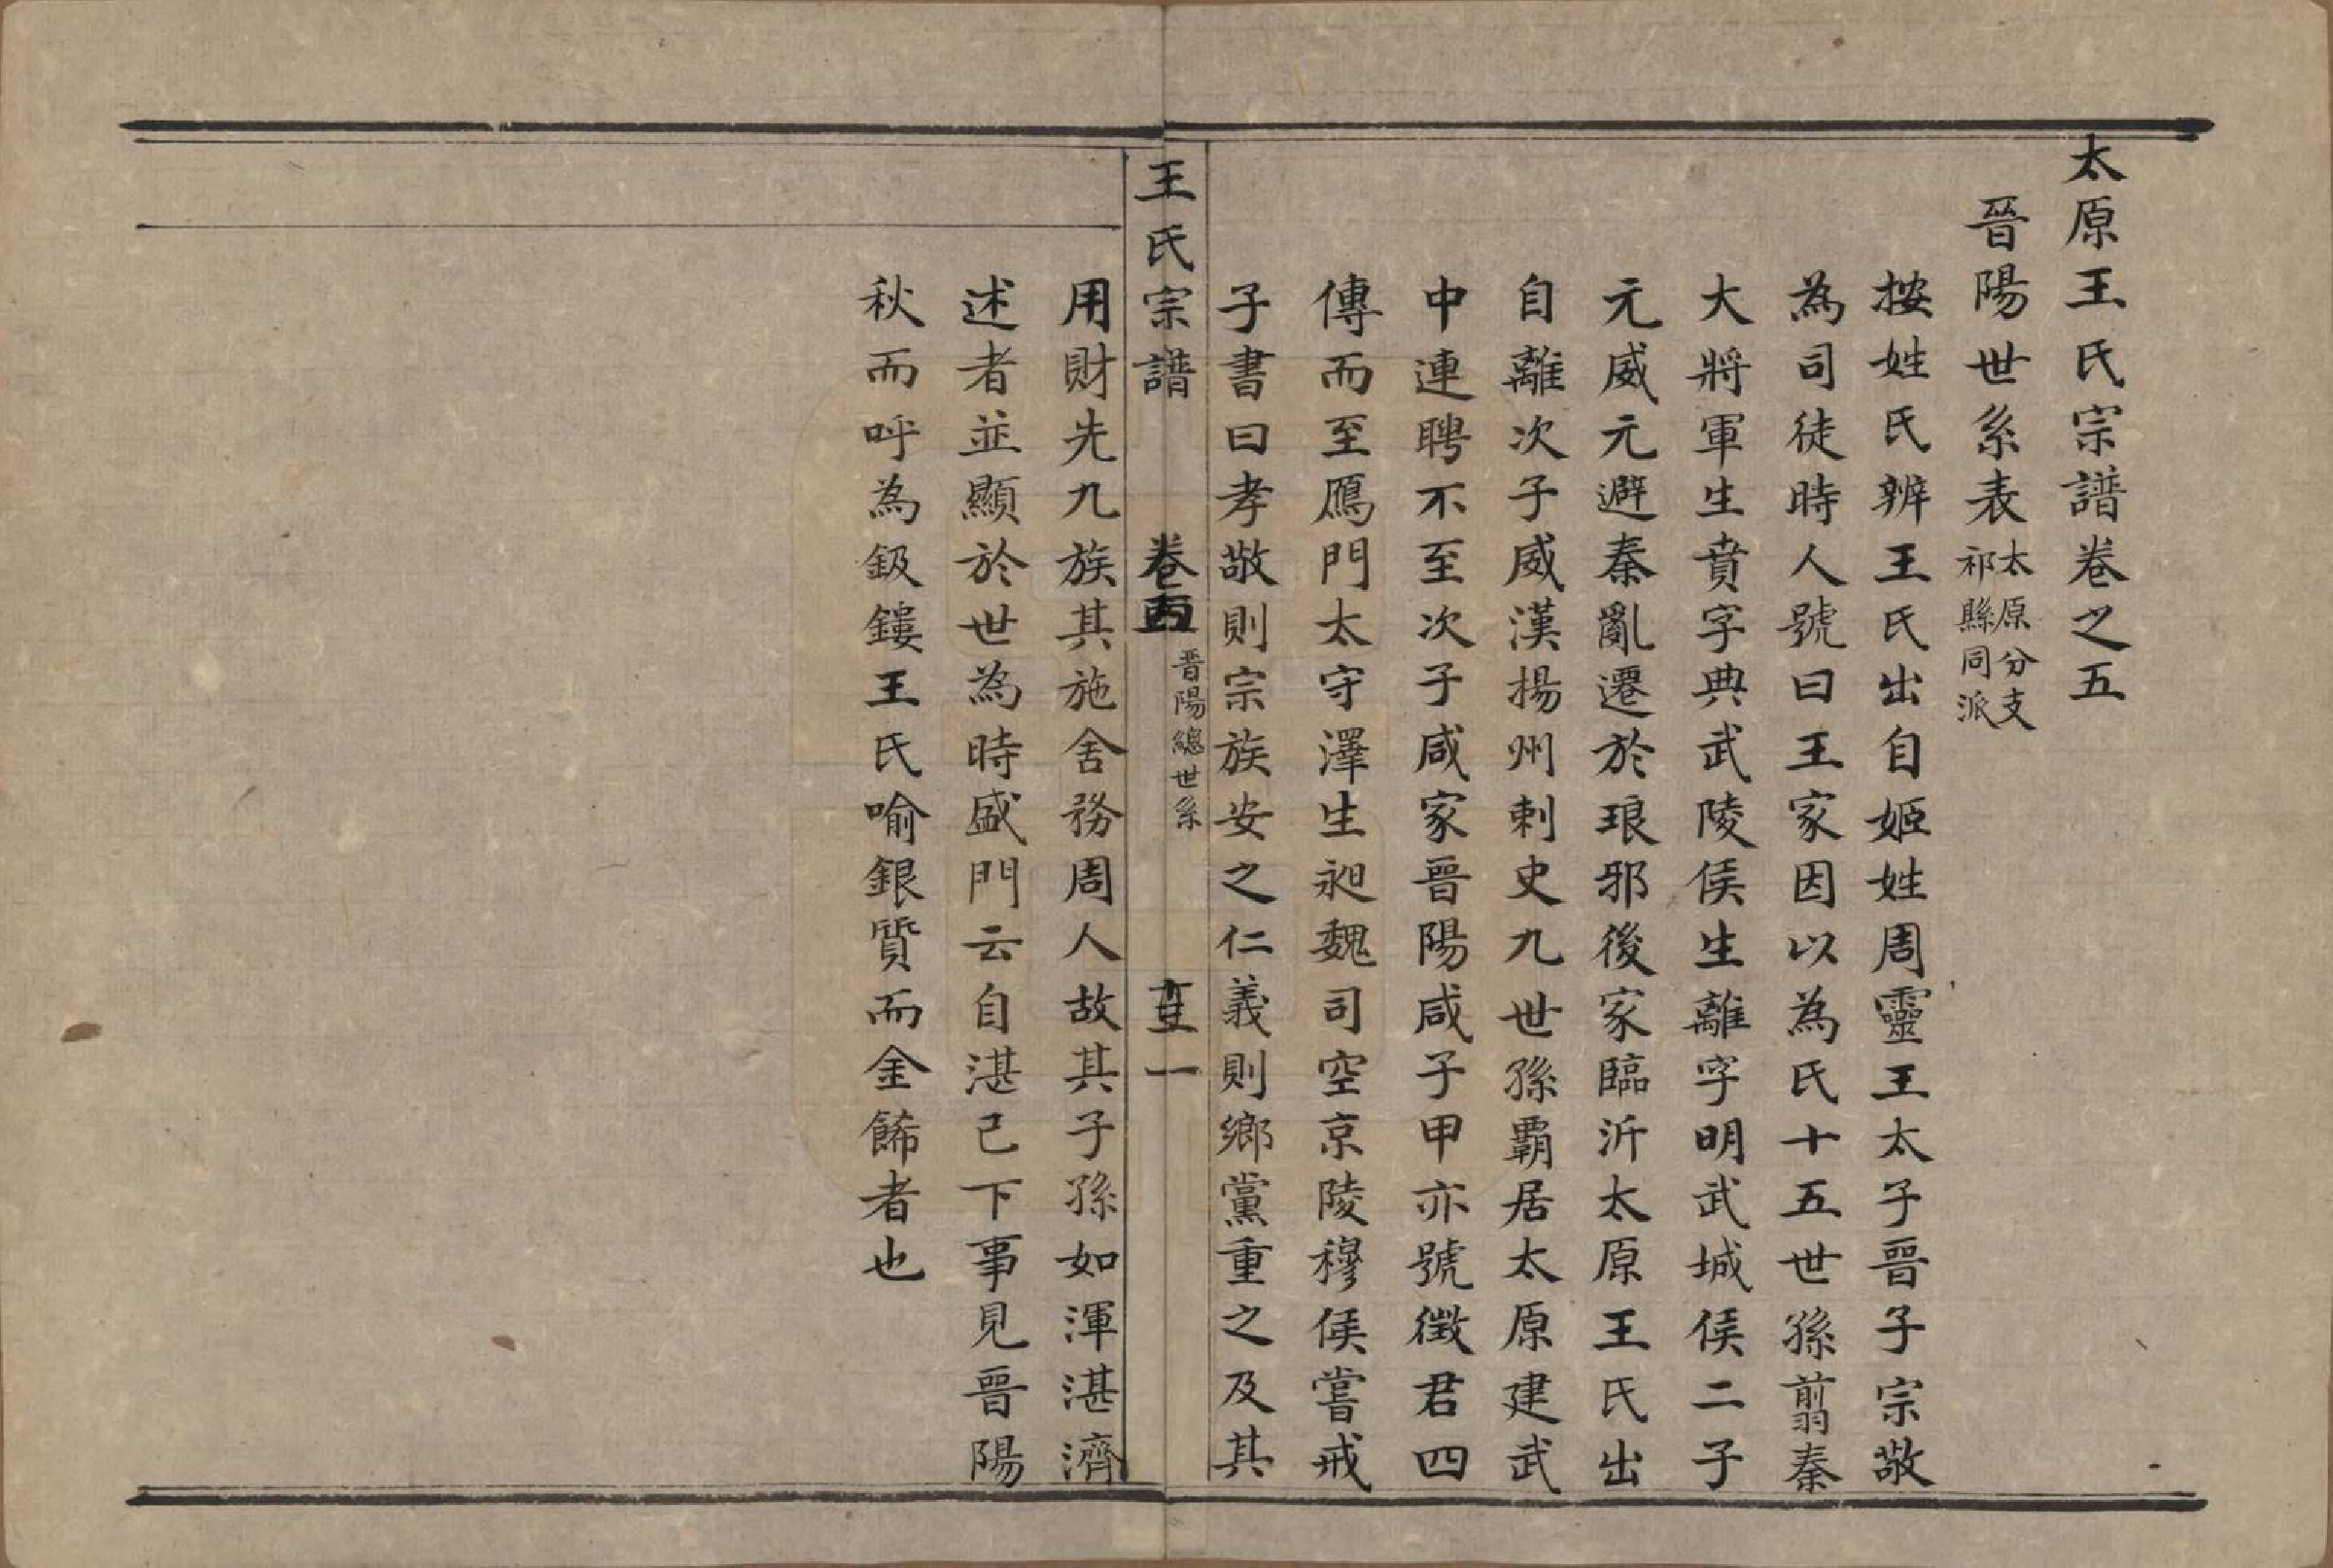 太原王氏宗譜卷之五
晉陽世系表
太原分支
祁縣同派
按姓氏辨王氏出自姬姓周靈王太子晉子宗敬
為司徒時人號曰王家因以為氏十五世孫翦秦
大將軍生賁字典武陵侯生離字明武城侯二子
元威元避秦亂遷於琅邪後家臨沂太原王氏出
自離次子威漢揚州刺史九世孫霸居太原建武
中連聘不至次子咸家晉陽咸子甲亦號徵君四
傳而至鴈門太守澤生昶魏司空京陵穆侯嘗戒
子書曰孝敬則宗族安之仁義則鄉黨重之及其
王氏宗譜
卷
晉陽總世系
一
用財先九族其施舍務周人故其子孫如渾湛濟
述者並顯於世為時盛門云自湛己下事見晉陽
秋而呼為鈒鏤王氏喻銀質而金餙者也